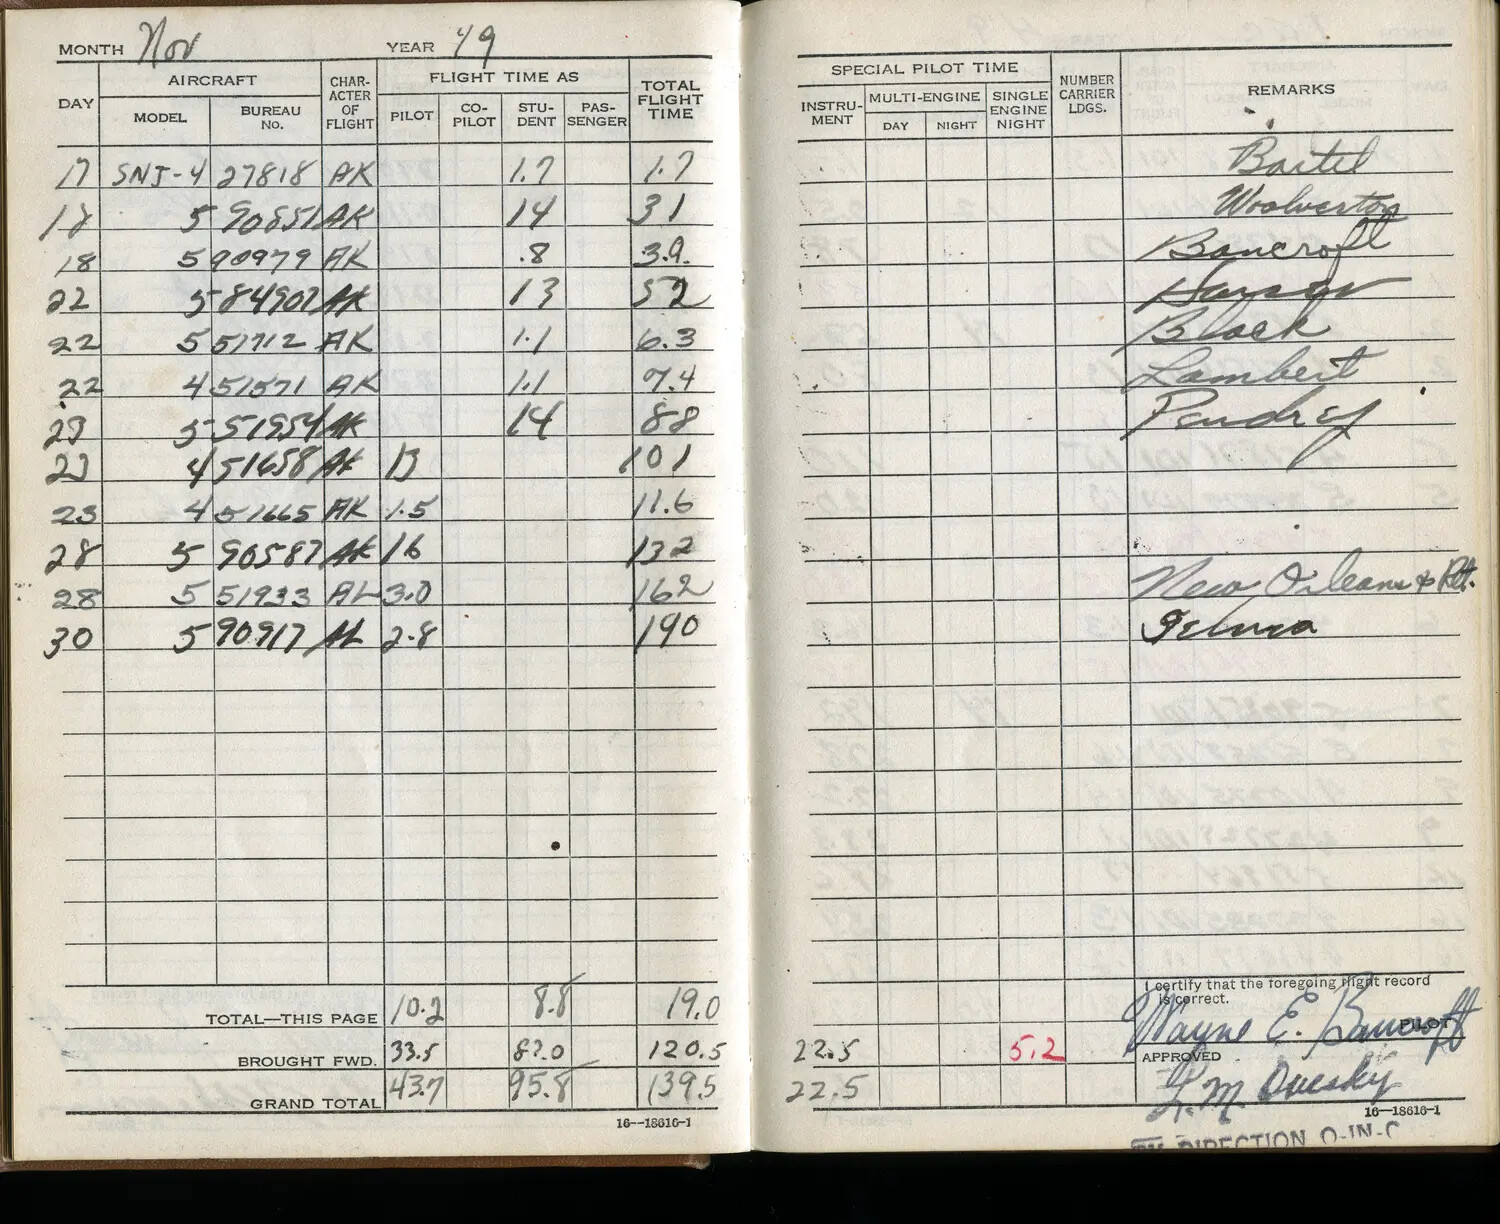 MONTH Nov YEAR 49
DAY AIRCRAFT MODEL BUREAU No. CHARACTER OF FLIGHT FLIGHT TIME AS PILOT CO-PILOT STUDENT PASSENGER TOTAL FLIGHT TIME SPECIAL PILOT TIME INSTRUMENT MULTI-ENGINE DAY NIGHT SINGLE ENGINE NIGHT NUMBER CARRIER LDGS. REMARKS
17 SNJ-4 27818 AK 1.7 1.7 Bartel
18 5 90851 AK 14 31 Woolverton
18 5 90979 AK .8 3.9 Bancroft
22 5 84907 AK 13 52
22 5 51712 AK 1.1 6.3 Black
22 4 51571 AK 1.1 7.4 Lambert
23 5 51954 AK 14 88 Pendrey
23 4 51658 AK 13 101
23 4 51665 AK 1.5 11.6
28 5 90587 AK 16 132
28 5 51933 AL 3.0 162 New Orleans & Ret.
30 5 90917 AL 2.8 190 Selma
TOTAL—THIS PAGE 10.2 8.8 19.0
I certify that the foregoing flight record is correct.
Wayne E. Bancroft PILOT
BROUGHT FWD. 33.5 87.0 120.5 22.5 5.2
APPROVED
GRAND TOTAL 43.7 95.8 139.5 22.5
L. M.
16—18616-1 16—18616-1
BY DIRECTION O-IN-C